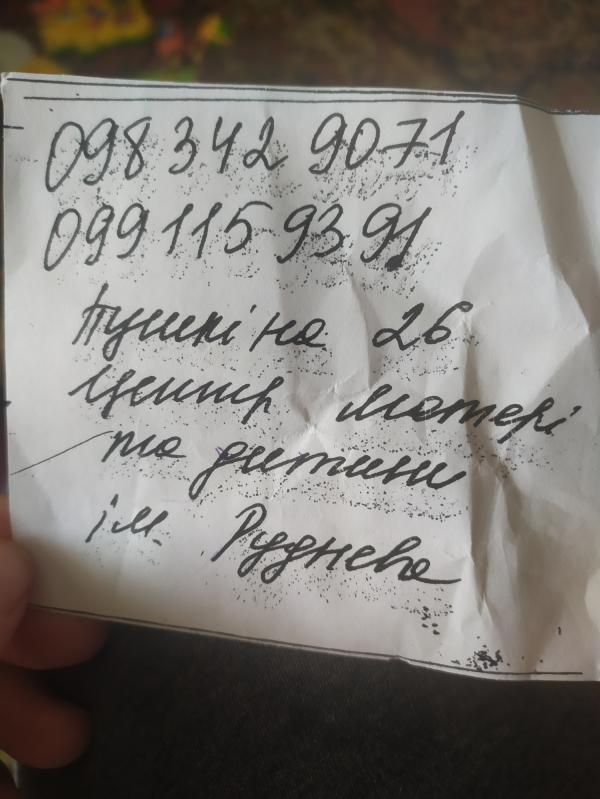 098 342 9071
099 115 93 91
Пушкіна 26
Центр матері
та дитини
ім. Руднєва